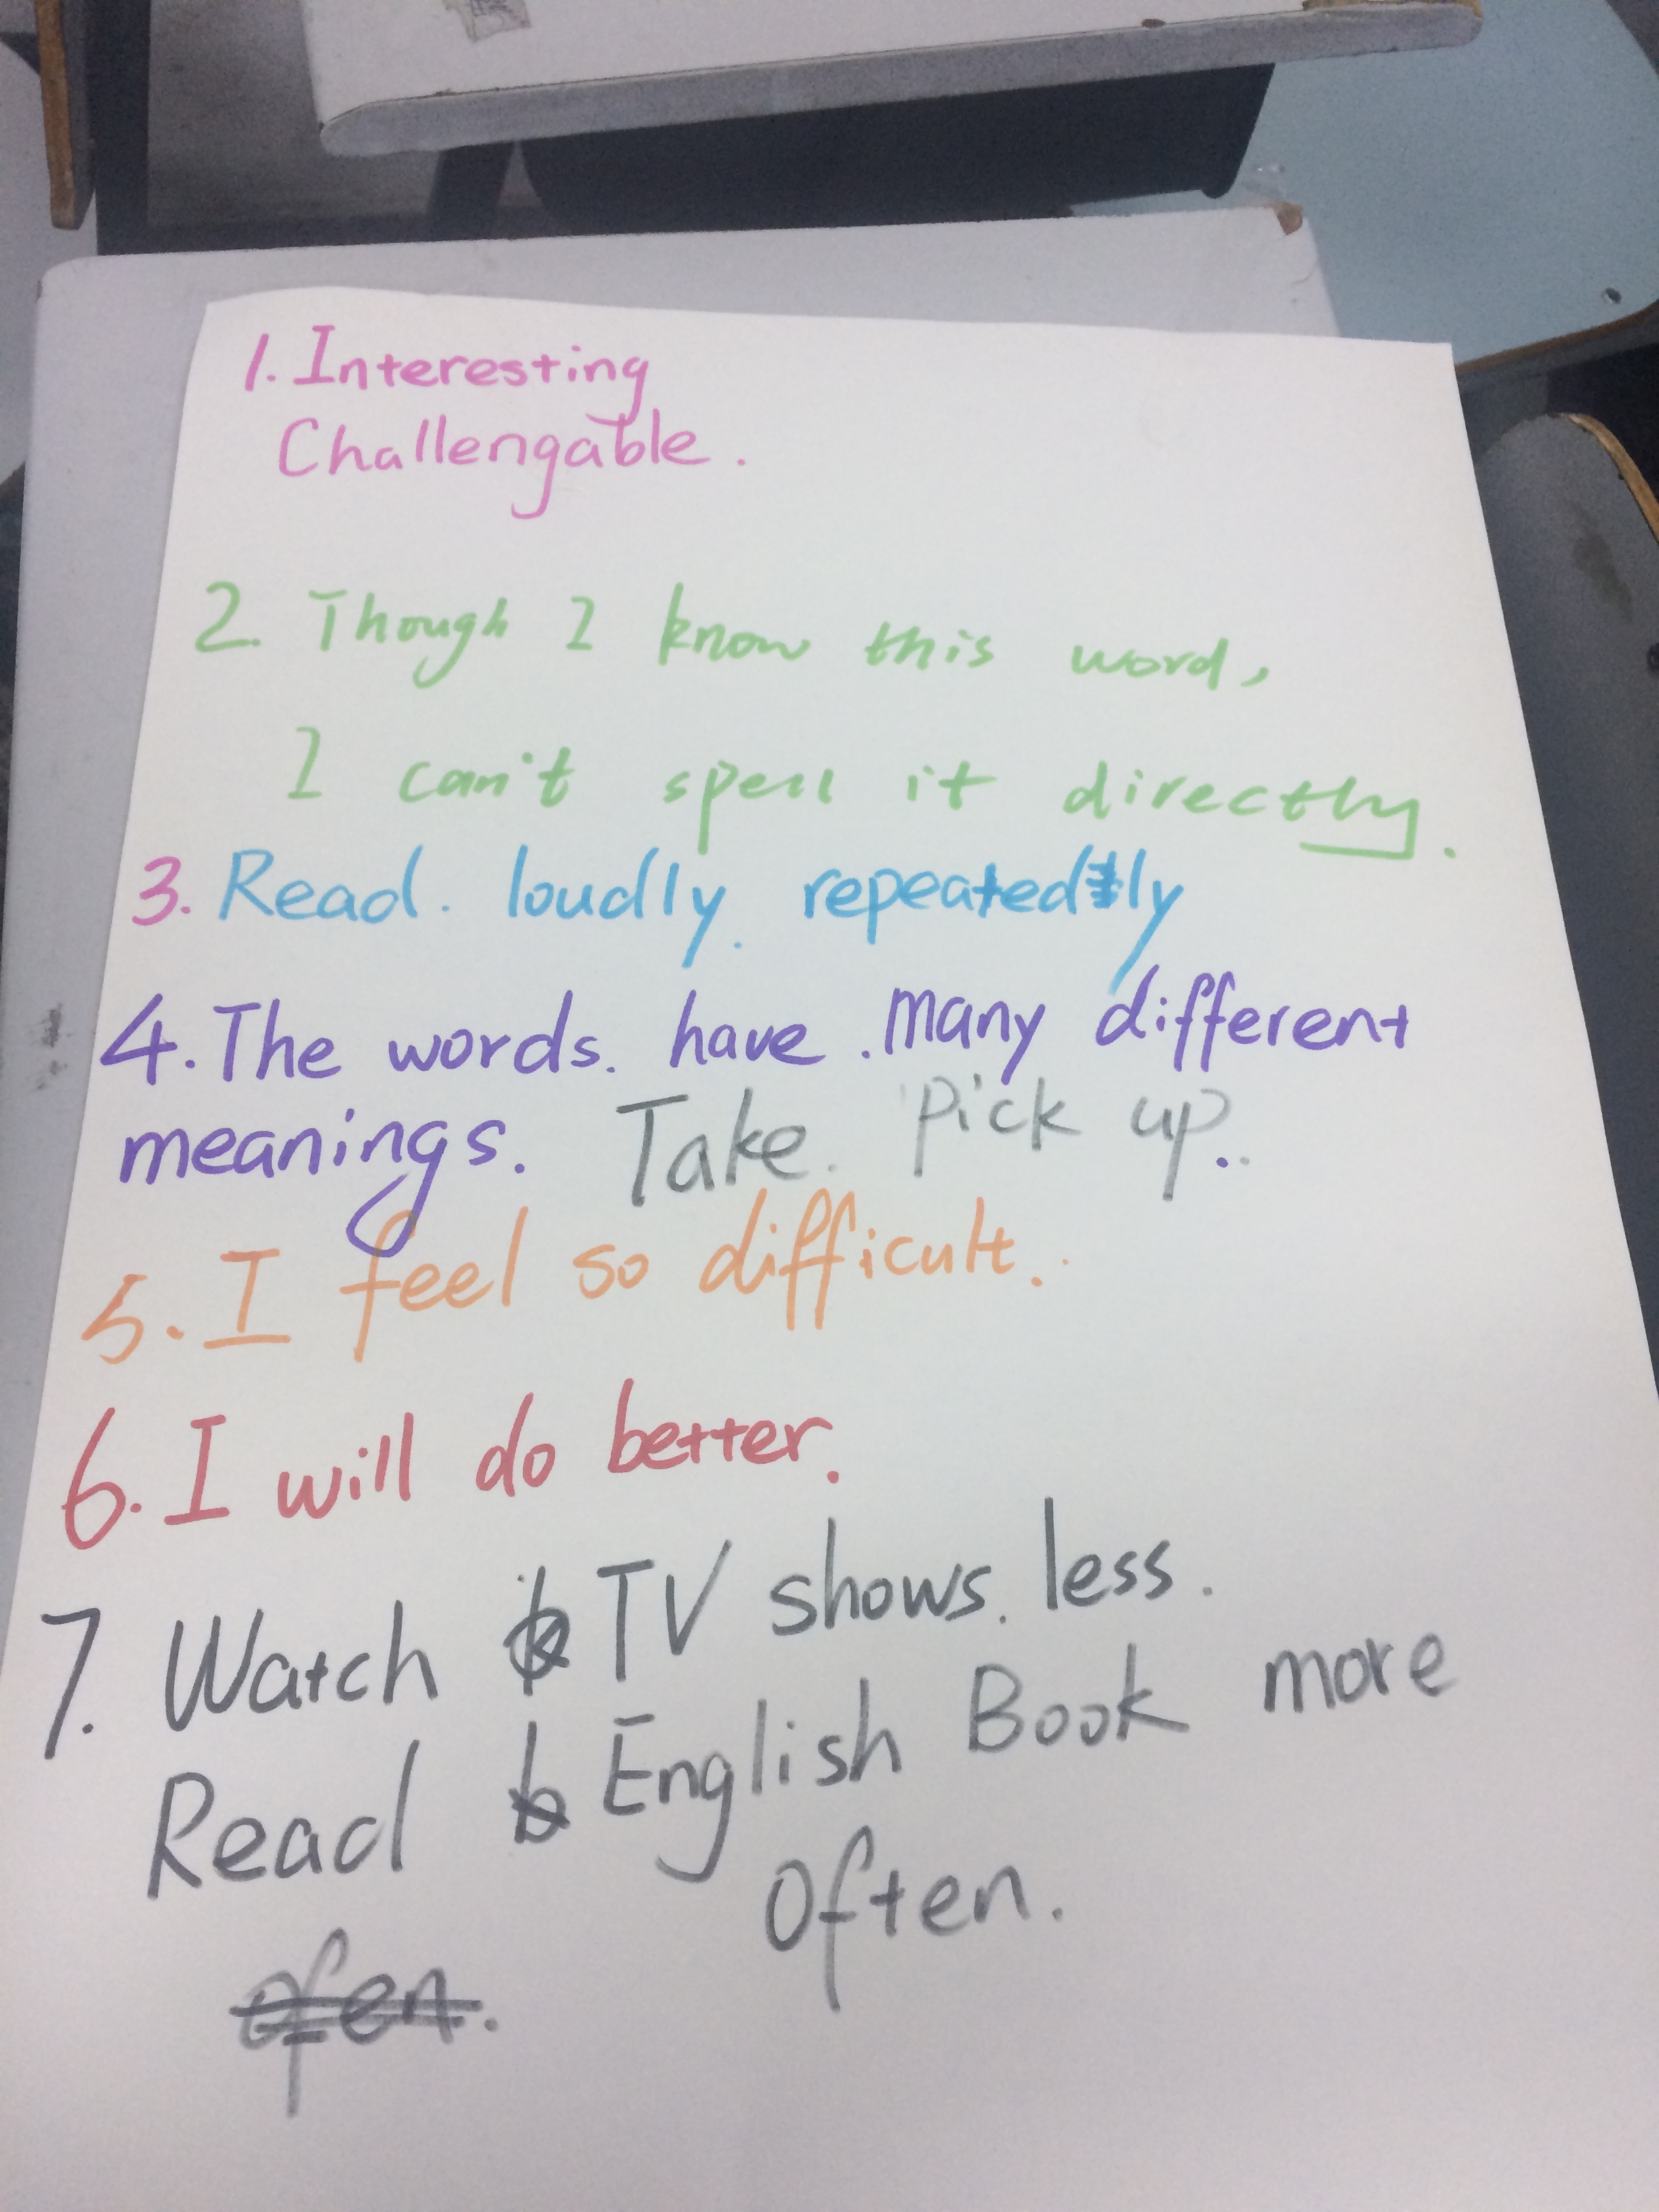 1. Interesting
Challengable.
2. Though I know this word,
I can't spell it directly.
3. Read. loudly. repeatedly
4. The words. have. many different
meanings. Take. Pick up..
5. I feel so difficult.
6. I will do better.
7. Watch TV shows. less.
Read English Book more
often.
ofen.